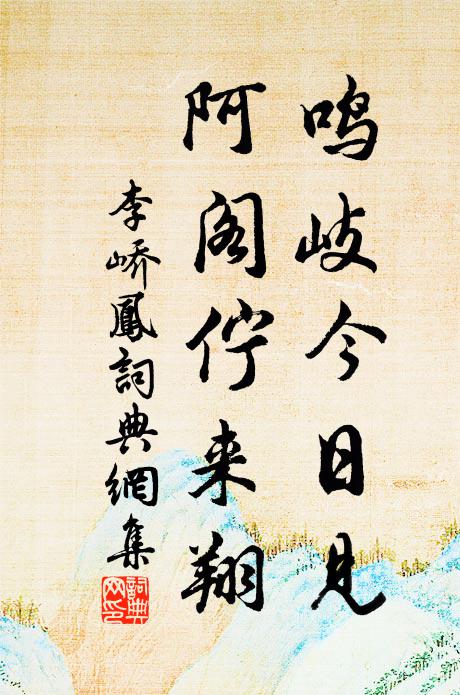 鸣岐今日见
阿阁伫来翔
李峤鳳詞典網集
詞典网印